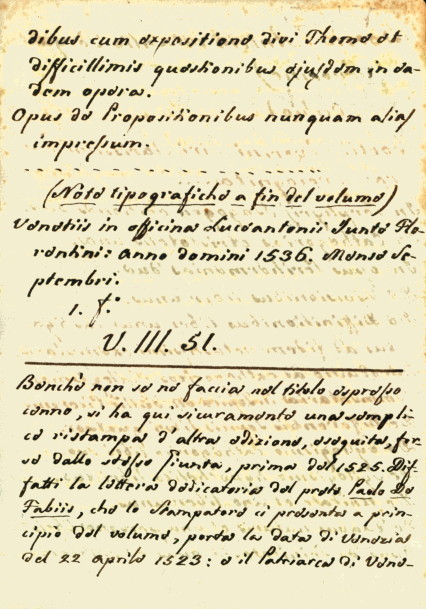 dibus cum expositione divi Thome et
difficillimis questionibus ejusdem in ea-
dem opera.
Opus de Propositionibus nunquam alias
impressum.
(Note tipografiche a fin del volume)
Venetiis in officina Luceantonii Junte Flo-
rentini: anno domini 1536. Mense Se-
ptembri.
1. f.º
V. III. 51.
Benchè non se ne faccia nel titolo espresso
cenno, si ha qui sicuramente una sempli-
ce ristampa d'altra edizione, eseguita, for-
se dallo stesso Giunta, prima del 1525. Dif-
fatti la lettera dedicatoria del prete Paolo De
Fabiis, che lo Stampatore ci presenta a prin-
cipio del volume, porta la data di Venezia
del 22 aprile 1523: e il Patriarca di Vene-